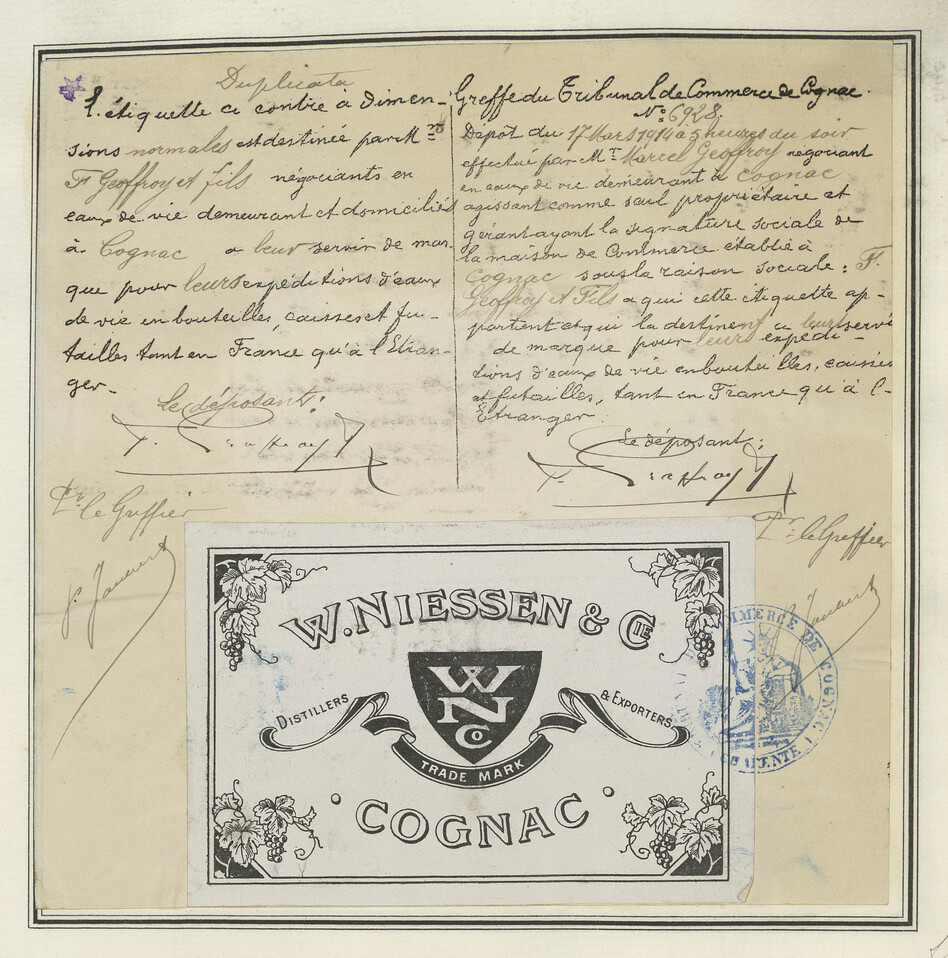 Duplicata
L'étiquette ci contre à dimen-
sions normales est destinée par Mrs
F Geoffroy et fils négociants en
eaux de vie demeurant et domiciliés
à Cognac a leur servir de mar-
que pour leurs expéditions d'eaux
de vie en bouteilles, caisses et fu-
tailles tant en France qu'à l'Etran-
ger.
Le déposant:
F. Geoffroy
Pr le Greffier
Greffe du Tribunal de Commerce de Cognac.
No 6928
Dépôt du 17 Mars 1914 a 5 heures du soir
effectué par Mr Marcel Geoffroy négociant
en eaux de vie demeurant à Cognac
agissant comme seul propriétaire et
gérant ayant la signature sociale de
la maison de Commerce établie à
Cognac sous la raison sociale: F.
Geoffroy et Fils a qui cette étiquette ap-
partient et qui la destinent a leur servi
de marque pour leurs expédi-
tions d'eaux de vie en bouteilles, caisses
et futailles, tant en France qu'à l'-
Etranger.
Le déposant:
F. Geoffroy
Pr le Greffier
W. NIESSEN & CIE
DISTILLERS & EXPORTERS
WNCo
TRADE MARK
COGNAC
COMMERCE DE COGNAC
CHARENTE